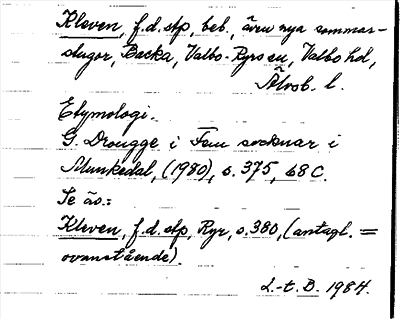 Kleven, f.d. stp, beb., även nya sommar-
stugor, Backa, Valbo-Ryrs sn, Valbo hd,
Älvsb. l.
Etymologi.
G. Drougge i Fem socknar i
Munkedal, (1980), s. 375, 68 C.
Se äv.:
Kleven, f.d. stp, Ryr, s. 380, (antagl. =
ovanstående).
L.-t. D. 1984.